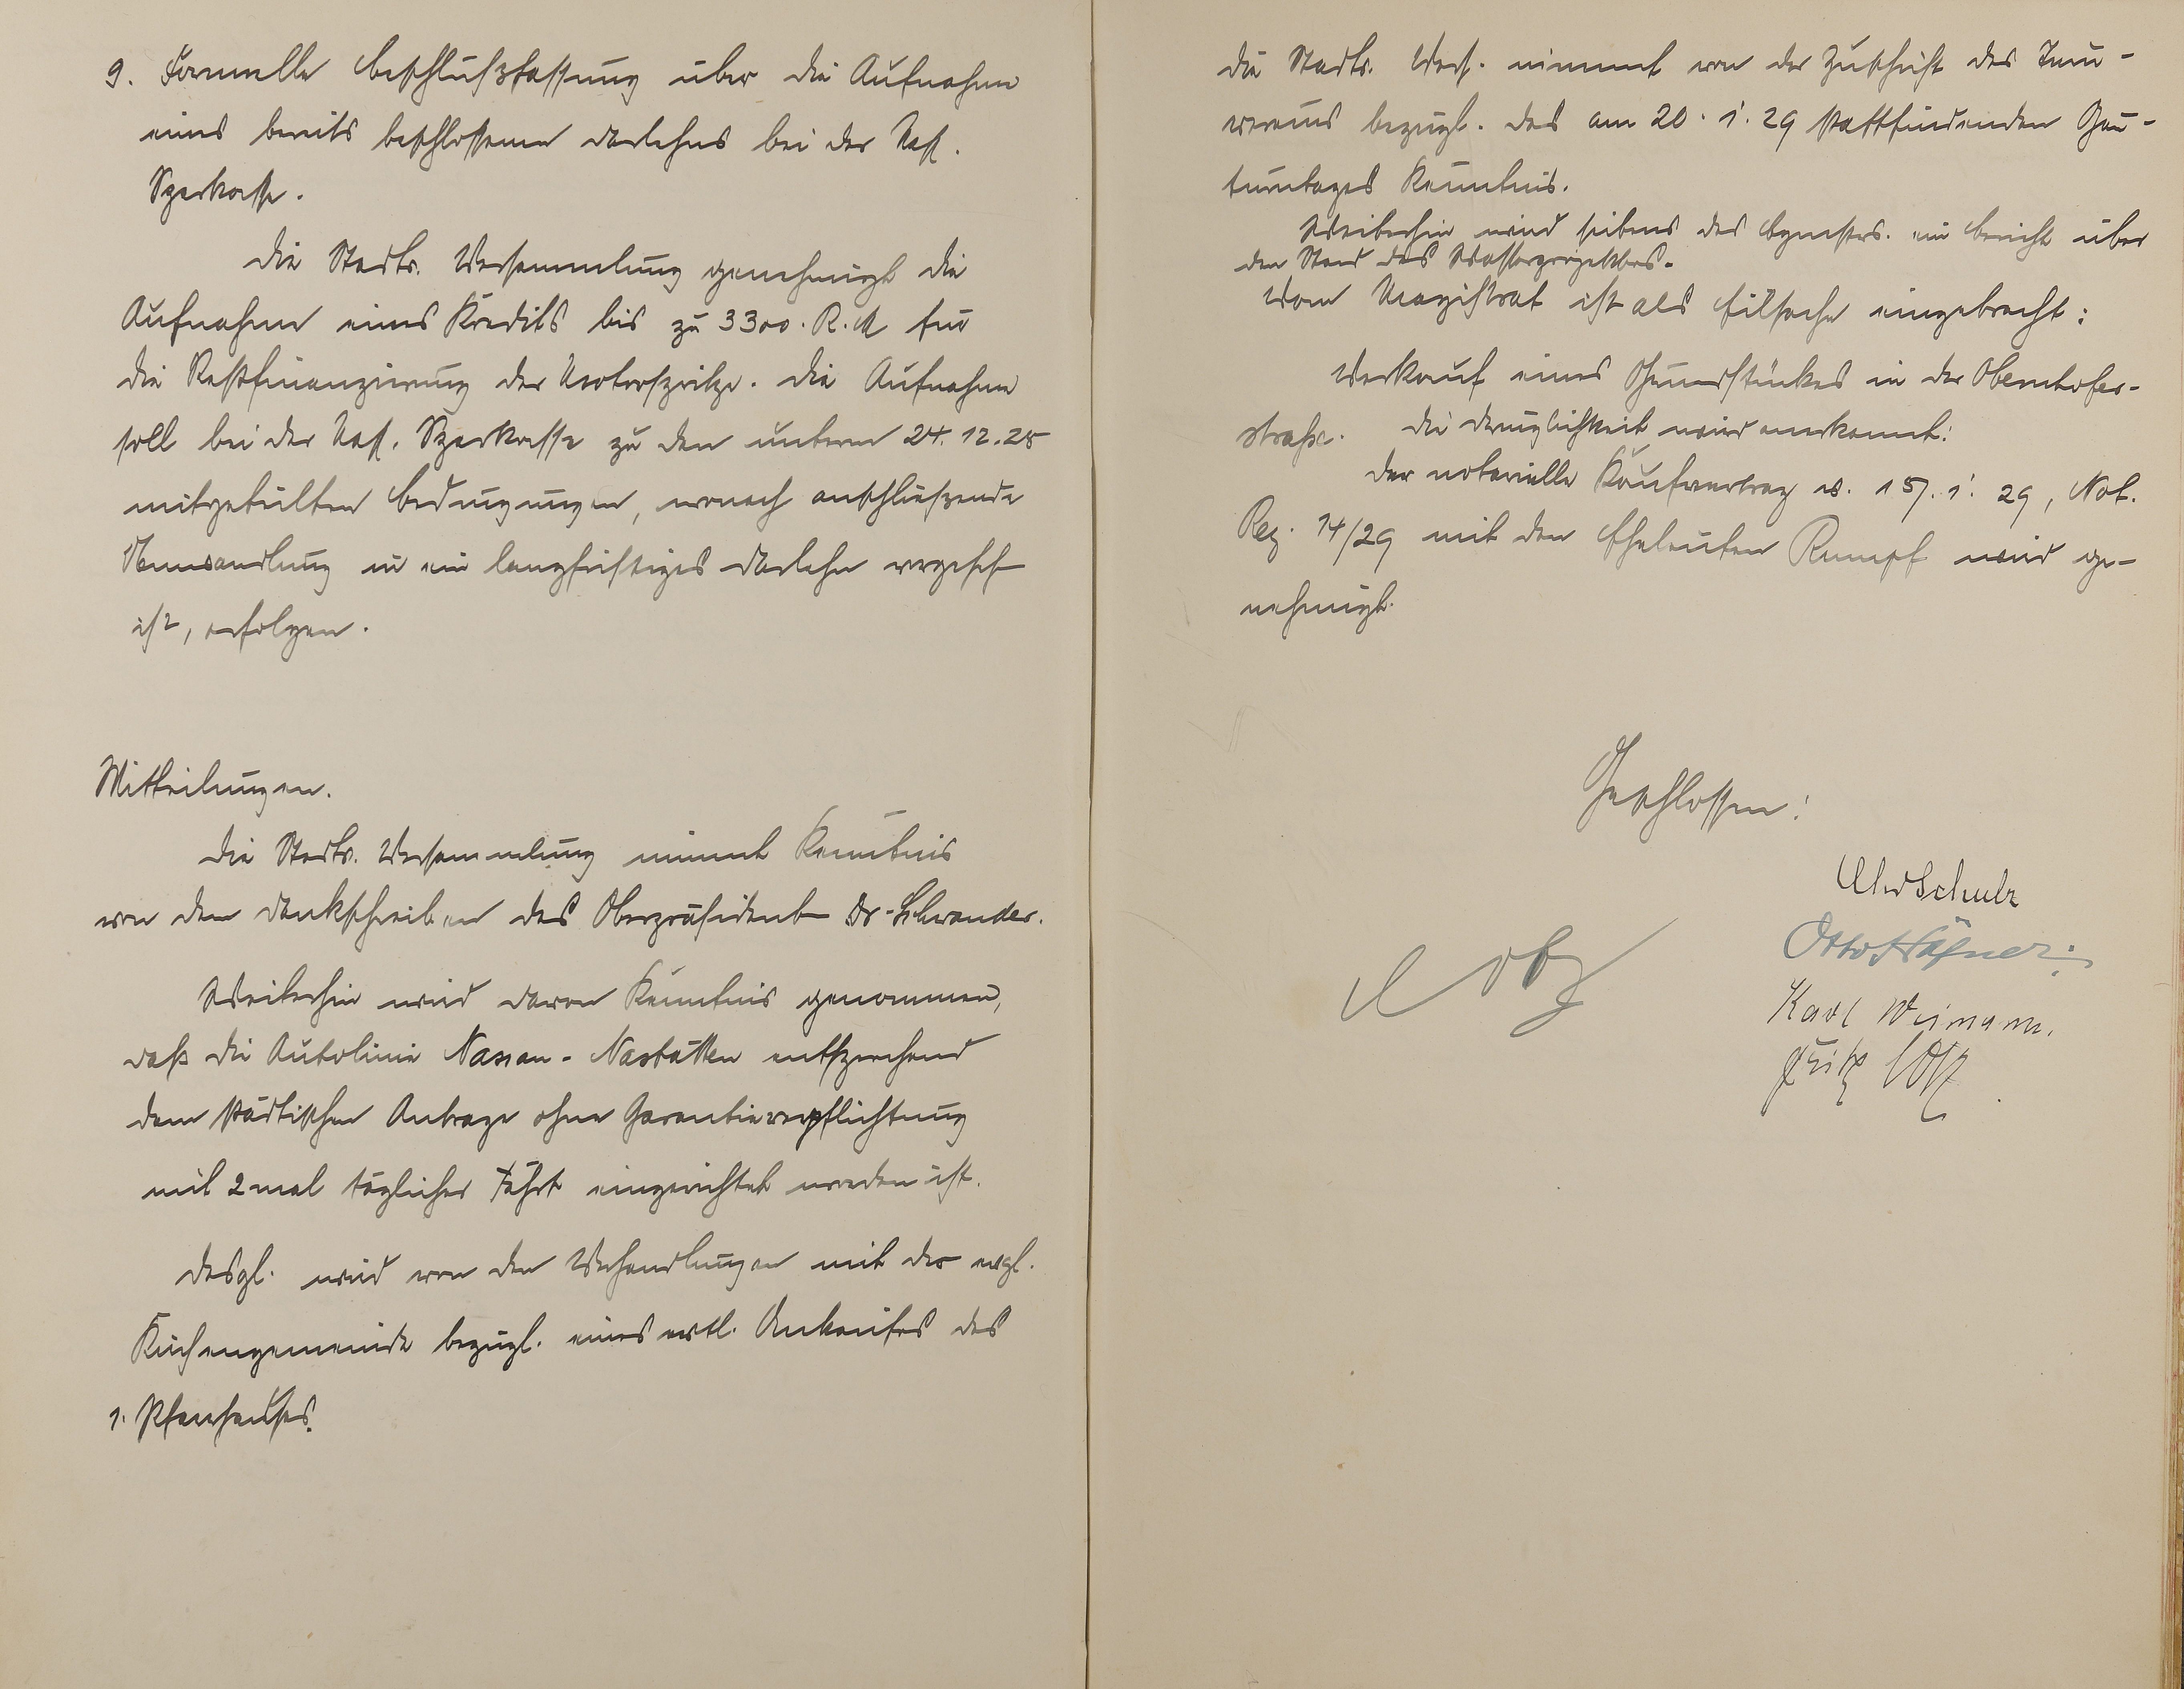 9. Formelle Beschlußfassung über die Aufnahme
eines bereits beschlossenen Darlehns bei der Nass.
Sparkasse.
Die Stadtv. Versammlung genehmigt die
Aufnahme eines Kredits bis zu 3300. R.M für
die Restfinanzierung der Motorspritze. Die Aufnahme
soll bei der Nass. Sparkasse zu den unterm 24. 12. 28
mitgeteilten Bedingungen, wonach anschließende
Umwandlung in ein langfristiges Darlehn vorgesehen
ist, erfolgen.
Mitteilungen.
Die Stadtv. Versammlung nimmt Kenntnis
von dem Dankschreiben des Oberpräsidenten Dr. Schwander.
Weiterhin wird davon Kenntnis genommen,
daß die Autolinie Nassau - Nastätten entsprechend
dem städtischen Antrage ohne Garantieverpflichtung
mit 2 mal täglicher Fahrt eingerichtet worden ist.
Desgl. wird von den Verhandlungen mit der evgl.
Kirchengemeinde bezügl. eines evtl. Ankaufes des
1. Pfarrhauses.
Die Stadtv. Vers. nimmt von der Zuschrift des Turn-
vereins bezügl. des am 20. 1. 29 stattfindenden Gau-
turntages Kenntnis.
Weiterhin wird seitens des Bgmstrs. ein Bericht über
den Stand des Wasserprojektes.
Vom Magistrat ist als Eilsache eingebracht:
Verkauf eines Grundstückes in der Obernhofer-
straße. Die Dringlichkeit wird anerkannt.
Der notarielle Kaufvertrag v. 15. 1. 29, Not.
Reg. 14/29 mit den Eheleuten Rumpf wird ge-
nehmigt.
Geschlossen:
Schulz
Otto Häfner
Karl Weimann.
Fritz